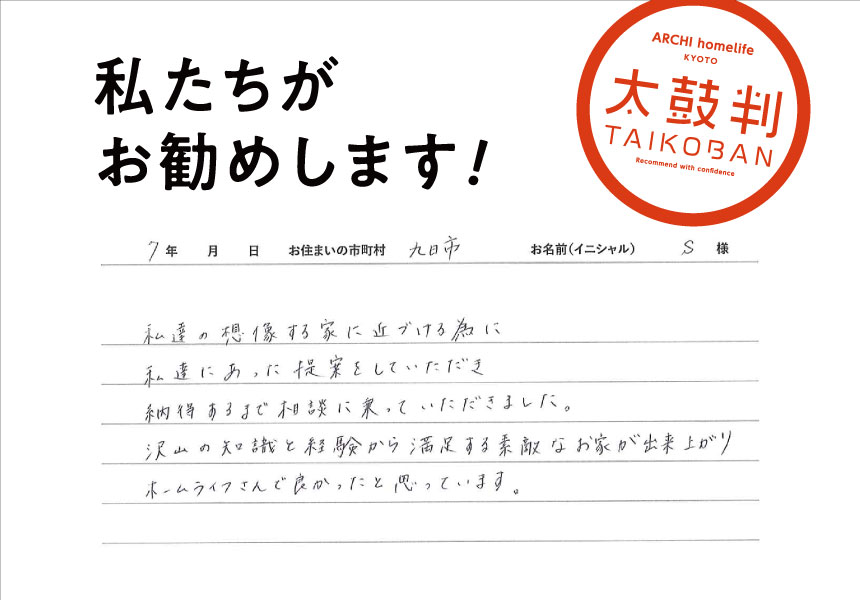 私たちが
お勧めします!
ARCHI homelife
KYOTO
太鼓判
TAIKOBAN
Recommend with confidence
7年 月 日 お住まいの市町村 九日市 お名前(イニシャル) S 様
私達の想像する家に近づける為に
私達にあった提案をしていただき
納得あるまで相談に乗っていただきました。
沢山の知識と経験から満足する素敵なお家が出来上がり
ホームライフさんで良かったと思っています。